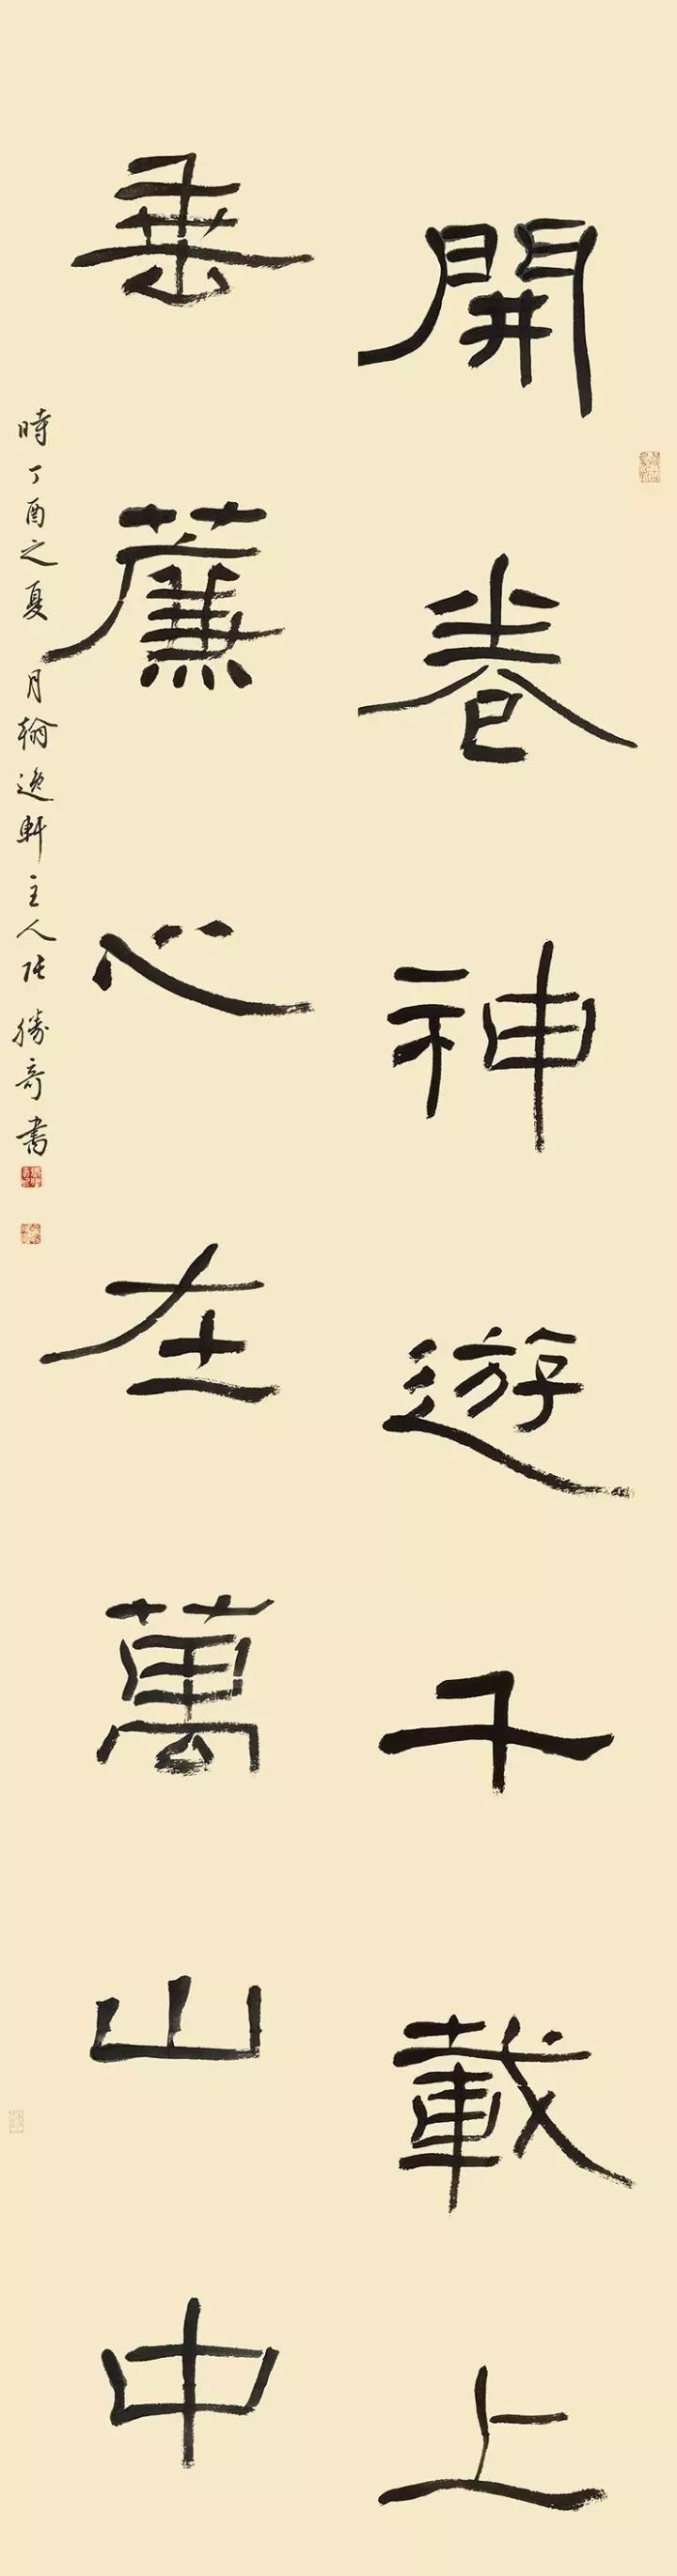 開卷神遊千載上
垂薕心在萬山中
時丁酉之夏月翰逸軒主人張勝奇書